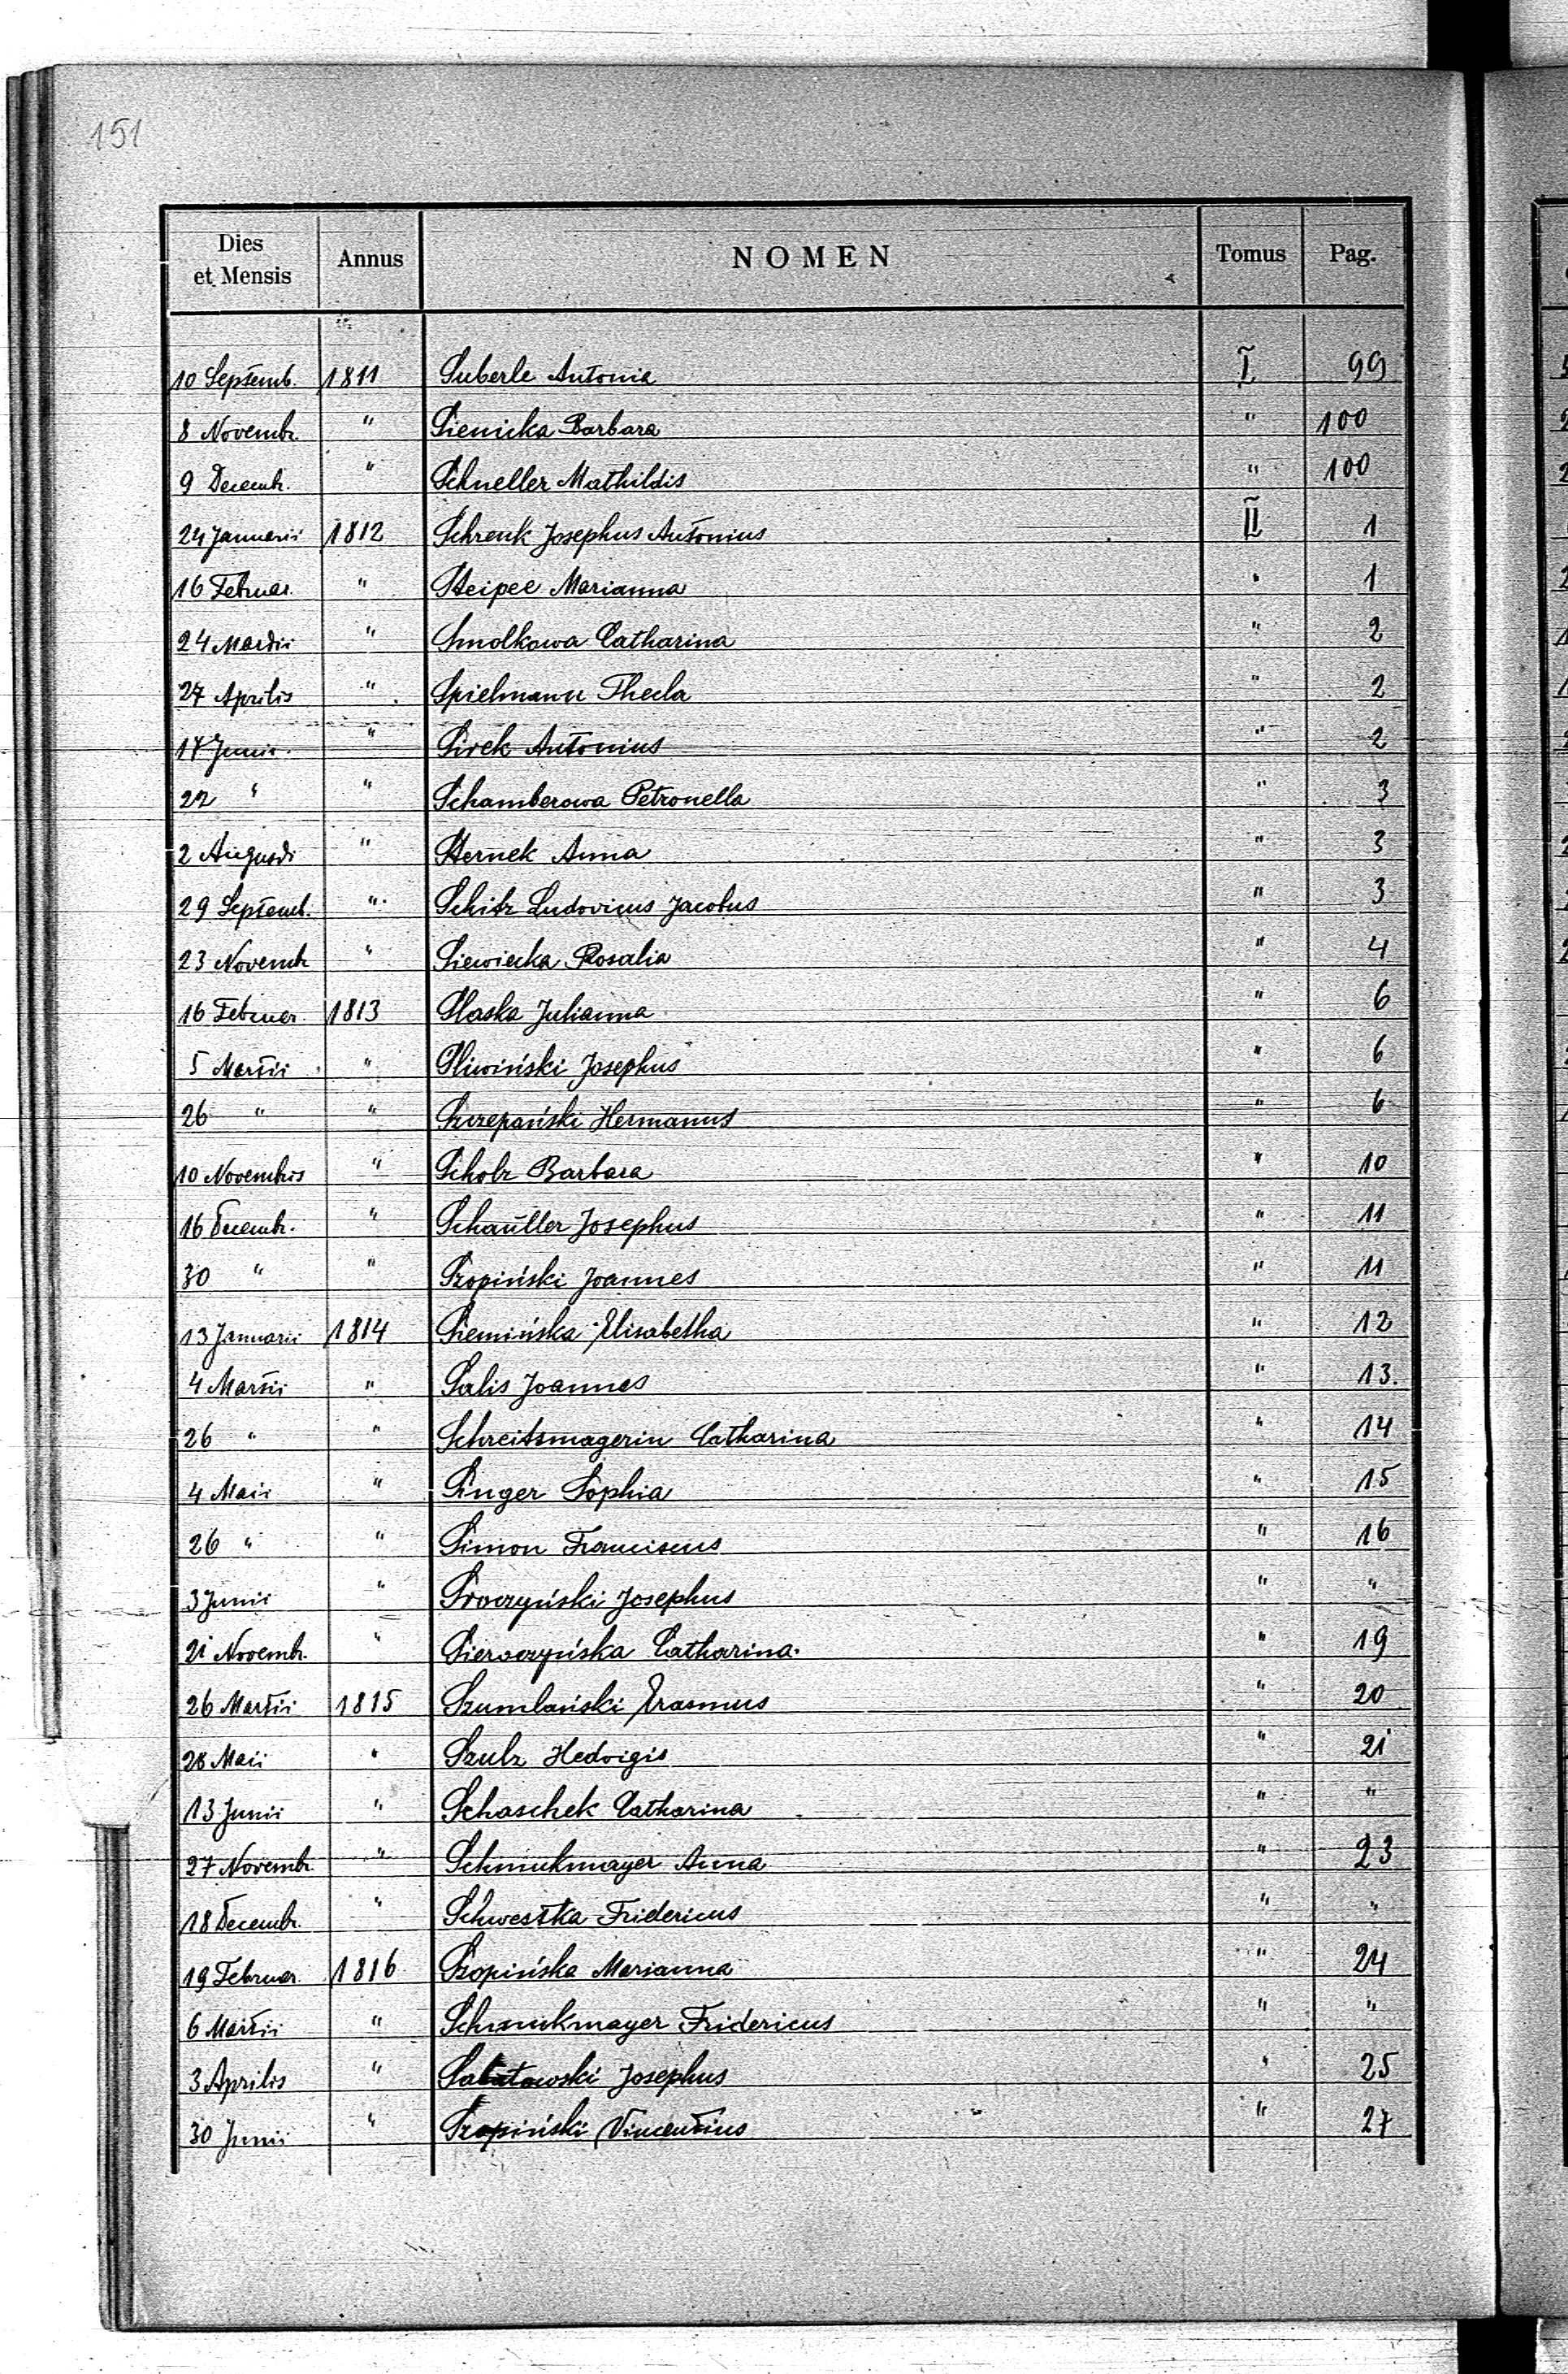 151
Dies et Mensis Annus NOMEN Tomus Pag.
10 Septemb. 1811 Suberle Antonia I 99
8 Novembr. " Sienicka Barbara " 100
9 Decembr. " Schneller Mathildis " 100
24 Januarii 1812 Schrenk Josephus Antonius II 1
16 Februar. " Steipel Marianna " 1
24 Martii " Smolkowa Catharina " 2
27 Aprilis " Spielmann Thecla " 2
17 Junii " Sirek Antonius " 2
22 " " Schamberowa Petronella " 3
2 Augusti " Sternek Anna " 3
29 Septemb. " Schitz Ludovicus Jacobus " 3
23 Novemb. " Siewiecka Rosalia " 4
16 Februar. 1813 Slaska Julianna " 6
5 Martii " Sliwiński Josephus " 6
26 " " Szczepański Hermanus " 6
10 Novembris " Scholz Barbara " 10
16 Decembr. " Schauller Josephus " 11
30 " " Szopiński Joannes " 11
13 Januarii 1814 Siemińska Elisabetha " 12
4 Martii " Salis Joannes " 13.
26 " " Schreitsmagerin Catharina " 14
4 Maii " Singer Sophia " 15
26 " " Simon Franciscus " 16
3 Junii " Sroczyński Josephus " "
21 Novembr. " Sieroczyńska Catharina. " 19
26 Martii 1815 Szumlański Erasmus " 20
28 Maii " Szulz Hedvigis " 21
13 Junii " Schaschek Catharina " "
27 Novembr. " Schmukmayer Anna " 23
18 Decembr. " Schwestka Fridericus " "
19 Februar. 1816 Szopińska Marianna " 24
6 Martii " Schmukmayer Fridericus " "
3 Aprilis " Josephus " 25
30 Junii " Szopiński Vincentius " 27